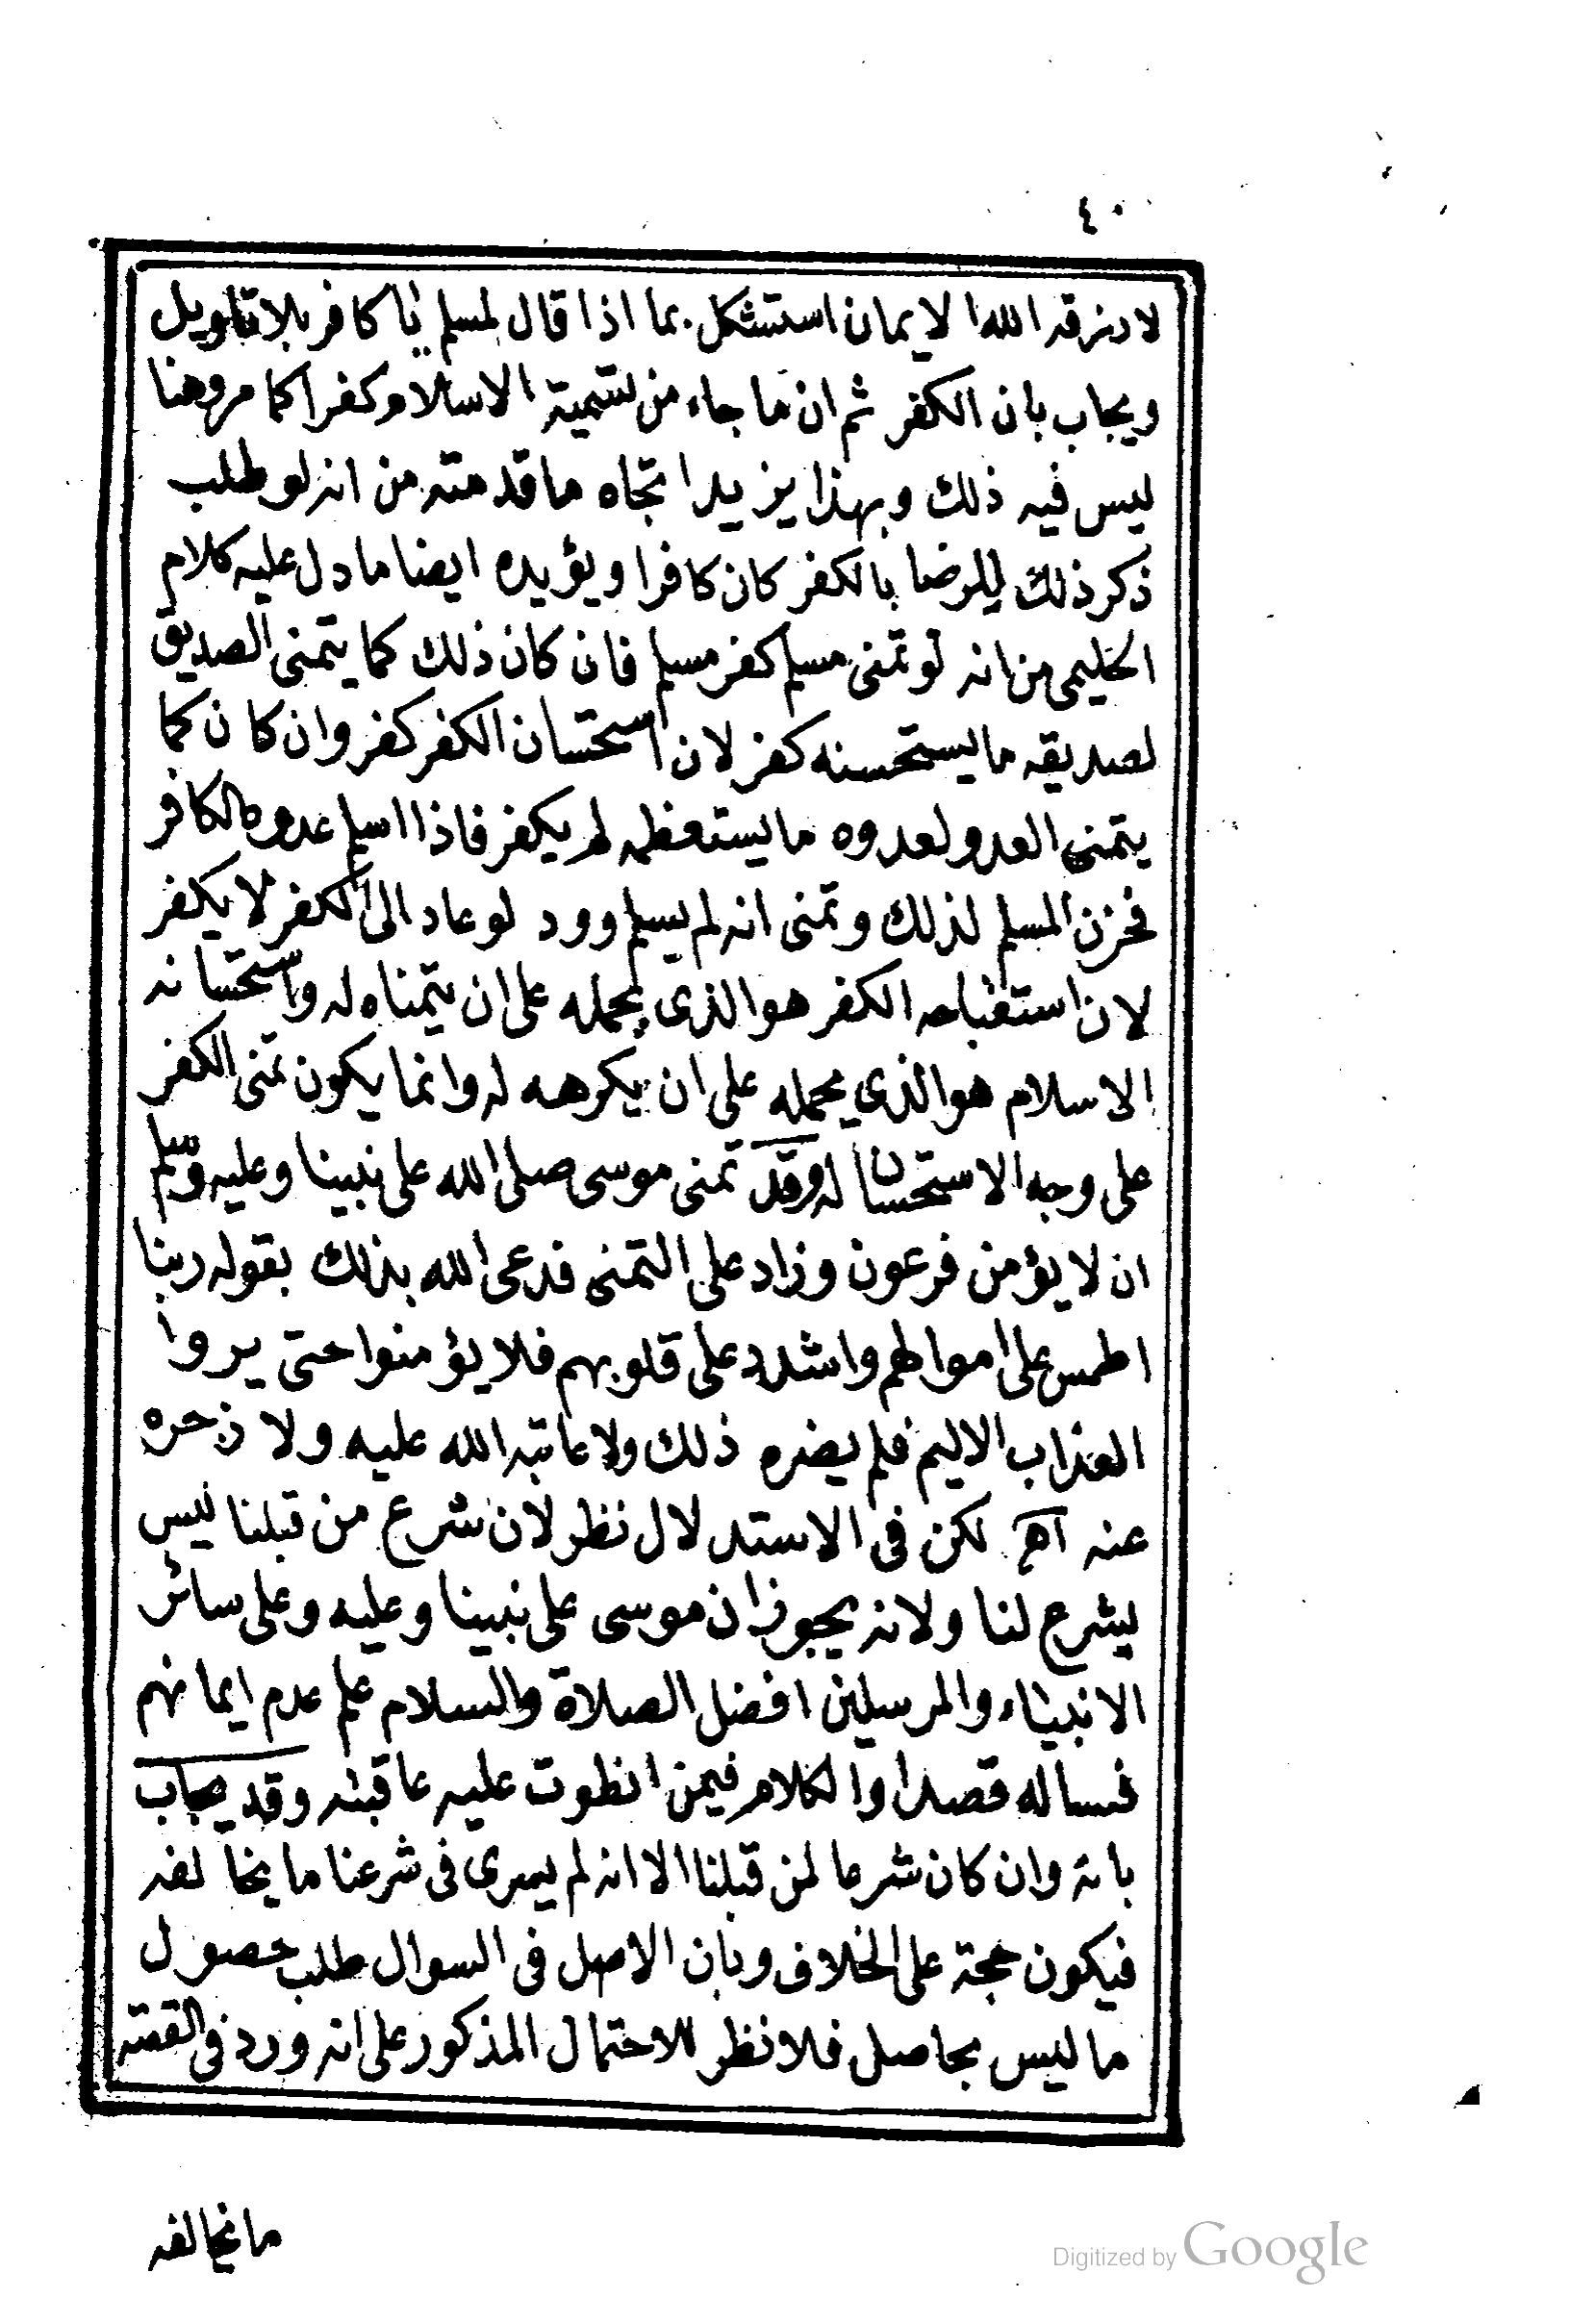 ٤٠
لا رزقه الله الايمان استشكل بما اذا قال لمسلم يا كافر بلا تاويل
ويجاب بان الكفر ثم ان ما جاء من تسمية الاسلام كفرا كما مر وهنا
ليس فيه ذلك وبهذا يزيد اتجاه ما قدمته من انه لو طلب
ذكر ذلك للرضا بالكفر كان كافرا ويؤيده ايضا ما دل عليه كلام
الحليمى من انه لو تمنى مسلم كفر مسلم فان كان ذلك كما يتمنى الصديق
لصديقه ما يستحسنه كفر لان استحسان الكفر كفر وان كان كما
يتمنى العدو لعدوه ما يستعظمه لم يكفر فاذا اسلم عدوه الكافر
فحزن المسلم لذلك وتمنى انه لم يسلم وود لو عاد الى الكفر لا يكفر
لان استقباحه الكفر هو الذى يحمله على ان يتمناه له واستحسانه
الاسلام هو الذي يحمله على ان يكرهه له وانما يكون تمنى الكفر
على وجه الاستحسان له وقد تمنى موسى صلى الله على نبينا وعليه وسلم
ان لا يؤمن فرعون وزاد على التمنى فدعى الله بذلك بقوله ربنا
اطمس على اموالهم واشدد على قلوبهم فلا يؤمنوا حتى يروا
العذاب الاليم فلم يضره ذلك ولا عاتبه الله عليه ولا زجره
عنه اهـ لكن فى الاستدلال نظر لان شرع من قبلنا ليس
بشرع لنا ولانه يجوز ان موسى على نبينا وعليه وعلى سائر
الانبياء والمرسلين افضل الصلاة والسلام علم عدم ايمانهم
فساله قصدا والكلام فيمن انطوت عليه عاقبته وقد يجاب
بانه وان كان شرعا لمن قبلنا الا انه لم يسرى فى شرعنا ما يخالفه
فيكون حجة على الخلاف وبان الاصل فى السوال طلب حصول
ما ليس بحاصل فلا نظر للاحتمال المذكور على انه ورد فى القصة
ما يخالفه
Digitized by Google